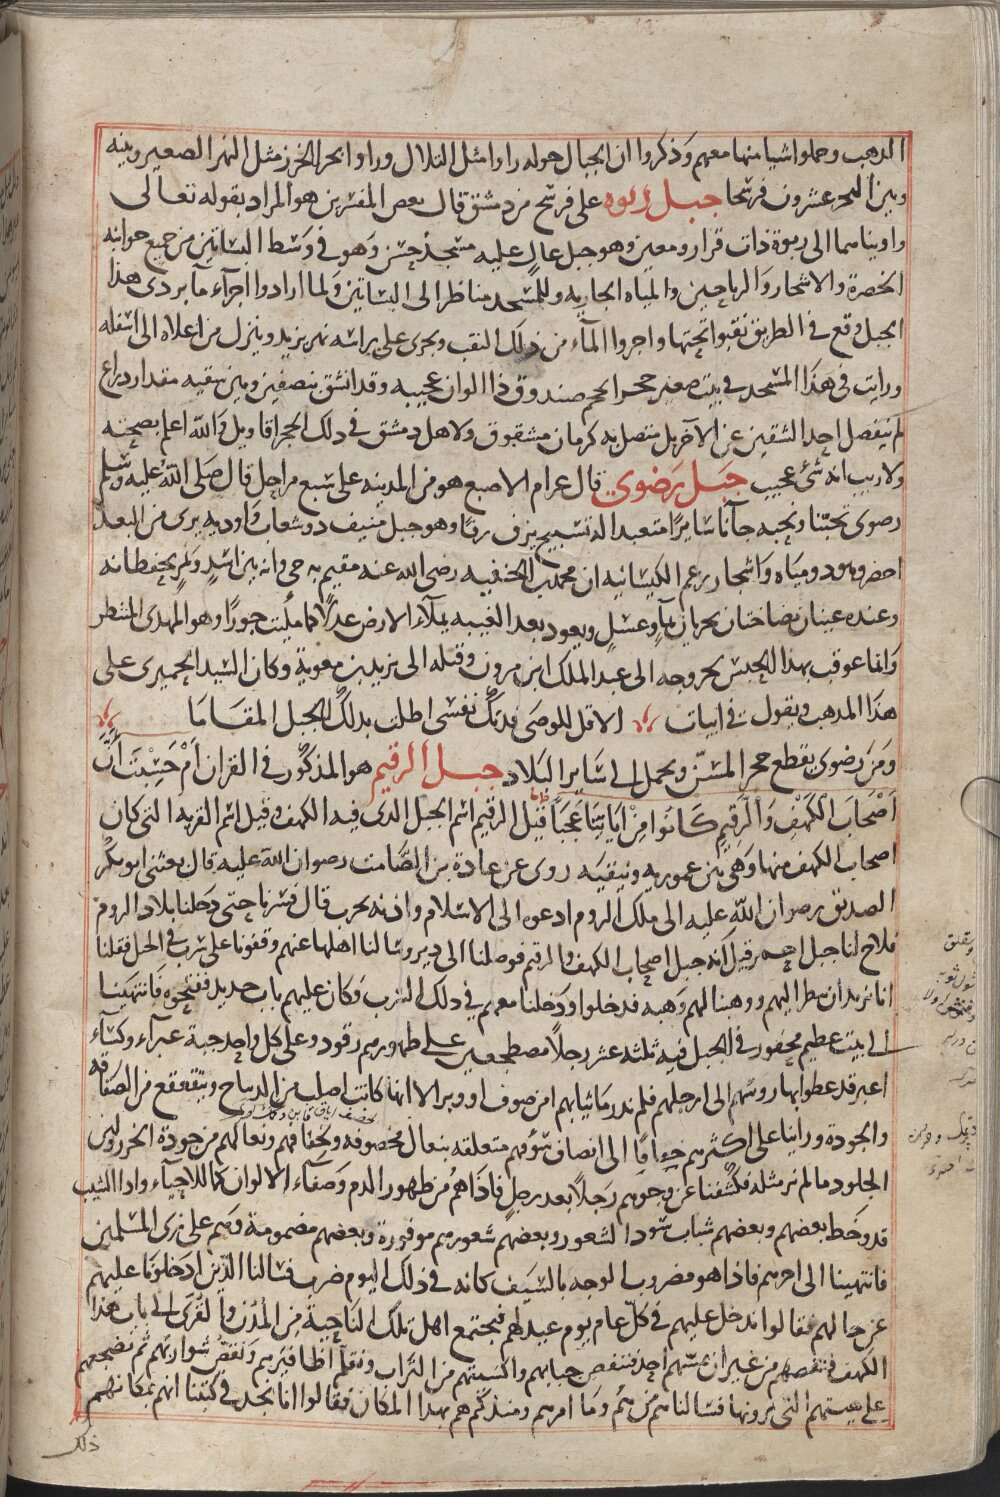 الذهب وحملوا شيا منها معهم وذكروا ان الجبال حوله راوا مثل التلال وراوا بحر الخرز مثل النهر الصغير وبينه
وبين البحر عشرون فرسخا جبل ربوه على فرسخ من دمشق قال بعض المفسرين هو المراد بقوله تعالى
واويناهما الى ربوة ذات قرار ومعين وهو جبل عال عليه مسجد حسن وهو في وسط البساتين من جميع جوانبه
الخضرة والاشجار والرياحين والمياه الجاريه وللمسجد مناظر الى البساتين ولما ارادوا اجرآء مآء بردى هذا
الجبل وقع في الطريق نقبوا تحتها واجروا المآء من ذلك النقب ويجرى على راسه نهر يزيد وينزل من اعلاه الى اسفله
ورايت في هذا المسجد في بيت صغير حجرا كحجم صندوق ذا الوان عجيبه وقد انشق بنصفين وبين شقيه مقدار ذراع
لم ينفصل احد الشقين عن الآخر بل متصل به كرمان مشقوق ولاهل دمشق في ذلك الحجر اقاويل والله اعلم بصحته
ولا ريب انه شئ عجيب جبل رضوى قال عرام الاصبع هو من المدينه على سبع مراحل قال صلى الله عليه وسلم
رضوى يحبنا ونحبه جآنا سايرا متعبدا له تسبيح يزف زفا وهو جبل منيف ذو شعاب واوديه يرى من البعد
اخضر ومياه واشجار يزعم الكيسانيه ان محمد بن الحنفيه رضى الله عنه مقيم به حى وانه بين اسد ونمر يحفظانه
وعنده عينان نضاختان تجريان بمآء وعسل ويعود بعد الغيبه يملآء الارض عدلا كما مليت جورا وهو المهدى المنتظر
وانما عوقب بهذا الحبس لخروجه الى عبد الملك ابن مرون وقتله الى يزيد بن معوية وكان السيد الحميرى على
هذا المذهب ويقول في ابيات الا قل للوصى فدتك نفسى اطلت بذلك الجبل المقاما
ومن رضوى يقطع حجر المسن ويحمل الى ساير البلاد جبل الرقيم هو المذكور في القران ام حسبت ان
اصحاب الكهف والرقيم كانوا من اياتنا عجبا قيل الرقيم اسم الجبل الذى فيه الكهف وقيل اسم القريه التى كان
اصحاب الكهف منها وهى بين عموريه ونيقيه روى عن عبادة بن الصامت رضوان الله عليه قال بعثنى ابو بكر
الصديق رضوان الله عليه الى ملك الروم ادعوه الى الاسلام واذنه بحرب قال فسرنا حتى دخلنا بلاد الروم
فلاح لنا جبل احمر قيل انه جبل اصحاب الكهف والرقيم فوصلنا الى دير وسالنا اهلها عنهم وقفونا على سرب في الجبل فقلنا
انا نريد ان ننظر اليهم ووهبنا لهم وهبه فدخلوا ودخلنا معهم في ذلك السرب وكان عليهم باب حديد ففتحوه فانتهينا
الى بيت عظيم محفور في الجبل فيه ثلثه عشر رجلا مضطجعين على ظهورهم رقود وعلى كل واحد جبة غبرآء وكسآء
اغبر قد غطوا بها روسهم الى ارجلهم فلم ندر ما ثيابهم امن صوف او وبر الا انها كانت اصلب من الديباج وتتقعقع من الصفاقه
والجودة وراينا على اكثرهم خفافا الى انصاف سوقهم متعلقه بنعال مخصوفه ولخفافهم ونعالهم من جودة الخرز ولين
الجلود ما لم نر مثله فكشفنا عن وجوههم رجلا بعد رجل فاذا هم من ظهور الدم وصفآء الالوان كاللاحيآء واذا الشيب
قد وخط بعضهم وبعضهم شباب سود الشعور وبعضهم شعورهم موفورة وبعضهم مضمومة وهم على زى المسلمين
فانتهينا الى اخرهم فاذا هو مضروب الوجه بالسيف كانه في ذلك اليوم ضرب فسالنا الذين ادخلونا عليهم
عن حالهم فقالوا ندخل عليهم في كل عام يوم عيد لهم فيجتمع اهل تلك الناحية من المدن والقرى الى باب هذا
الكهف فننفضهم من غير ان يمسهم احد فننفض جبابهم واكسيتهم من التراب ونقلم اظافيرهم ونقص شواربهم ثم نضجعهم
على هيئتهم التى ترونها فسالناهم من هم وما امرهم ومنذ كم هم بهذا المكان فقالوا انا نجد في كتبنا انهم بمكانهم
ذلك